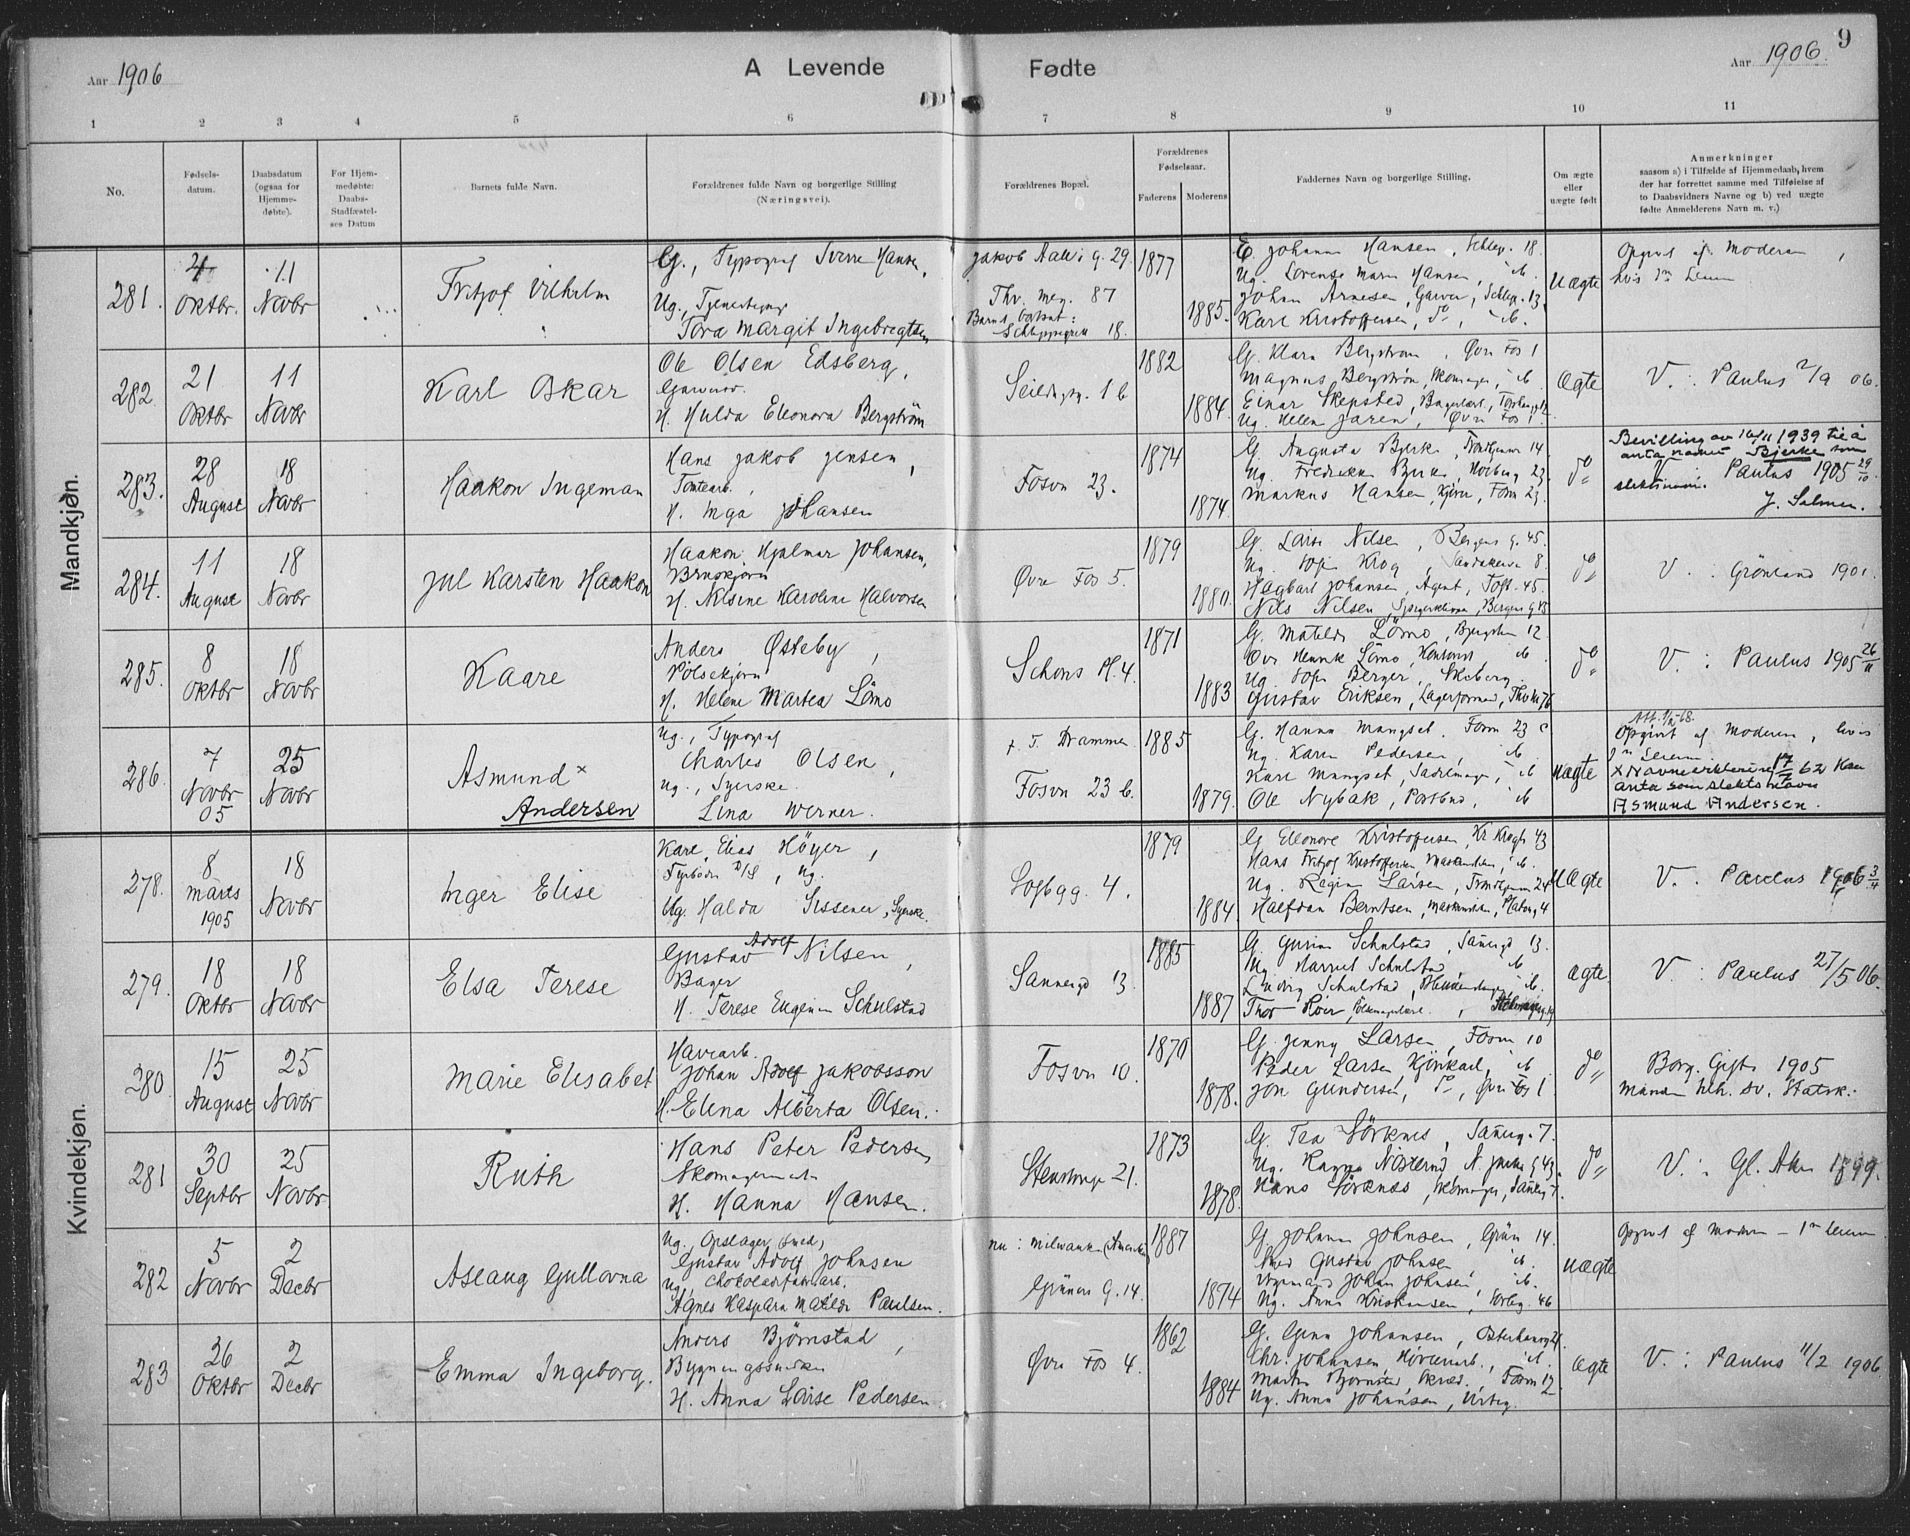 Aar 1906
A Levende
Fødte
Aar 1906.
9
1 2 3 4 5 6 7 8 9 10 11
No.
Fødsels-
datum.
Daabsdatum
(ogsaa for
Hjemme-
døbte).
For Hjem-
medøbte:
Daabs-
Stadfæstel-
ses Datum
Barnets fulde Navn.
Forældrenes fulde Navn og borgerlige Stilling
(Næringsvei).
Forældrenes Bopæl.
Forældrenes
Fødselsaar.
Faderens
Moderens
Faddernes Navn og borgerlige Stilling.
Om ægte
eller
uægte født
Anmerkninger
saasom a) i Tilfælde af Hjemmedaab, hvem
der har forrettet samme med Tilføielse af
to Daabsvidners Navne og b) ved uægte
fødte Anmelderens Navn m. v.)
Mandkjøn.
281.
4
Oktbr.
11
Novbr
Fritjof Vilhelm
G., Typograf Sverre Hansen,
Ug., Tjenestepige
Tora Margit Ingebregtsen
Jakob Aalls g. 29.
Thv. Mey. 87
Barnet bortsat:
Schleppegrell 18.
1877
1885.
E. Johanna Hansen, Schlep. 18.
Ug. Lorentze Marie Hansen, ib.
Johan Arnesen, Garver, Schlep. 13.
Karl Kristoffersen, do, ib.
Uægte
Opgivet af Moderen,
hvis 1ste Leiem
282.
21
Oktbr
11
Novbr
Karl Oskar
Ole Olsen Edsberg,
Garver
H. Hulda Eleonora Bergström
Seildugsg. 1 b
1882
1884.
G. Klara Bergstrøm, Øvre Fos 1
Magnus Bergstrøm, Skomager, ib
Einar Skepsted,
Ug. Helen Jaren, Øvre Fos 1.
Ægte
V.: Paulus 2/9 06.
283.
28
August
18
Novbr
Haakon Ingeman
Hans Jakob Jensen,
Tomtearb.,
H. Inga Johansen
Fosvn 23.
1874
1874.
G. Augusta Bjerke, Trondhjemsv 14
Ug. Fredrikke Bjerke, 23
Markus Hansen, Kjører, Fosvn 23.
do
Bevilling av 16/11 1939 til å
anta navnet Bjerke som
slektsnavn. V. Paulus 1905 29/10.
J. Salmer.
284.
11
August
18
Novbr
Jul Karsten Haakon
Haakon Hjalmar Johansen,
Bruskjører
H. Nilsine Karoline Halvorsen
Øvre Fos 5.
1879
1880.
G. Laise Nilsen, Bergens g. 45.
Ug. Sofie Krog, Sandakerv 8
Hagbart Johansen, Agent, Toft. 45.
Nils Nilsen, Bergens g 45
do
V.: Grönland 1901.
285.
8
Oktbr
18
Novbr
Kaare
Anders Østeby,
Pölsekjører
H. Helene Martea Lömo
Schous Pl. 4.
1871
1883
G. Matilde Lömo, Bjergstien 12
Ove Henrik Lömo, Kontorist, ib.
Ug. Sofie Berger, Skoberg.
Gustav Eriksen, Lagerformand, Thv M. 76
do
V.: Paulus 1905 26/11
286.
7
Novbr
05
25
Novbr
Asmund ×
Andersen
Ug., Typograf
Charles Olsen,
Ug., Syerske.
Lina Werner.
f. T. Drammen
Fosvn 23 b.
1885
1879.
G. Hanna Mangset. Fosvn 23 c
Ug. Karen Pedersen, ib
Karl Mangset, Sadelmager, ib
Ole Nybak, Postbud, ib
Uægte
Opgivet af Moderen, hvis
1ste Leiem.
× Navneerklæring 17/7 62 Kan
anta som slektsnavn
Asmund Andersen.
Kvindekjøn.
278.
8
Marts
1905
18
Novbr
Inger Elise
Karl Elias Höyer,
Fyrbøder D/S, Ug.
Ug. Halda Sissener, Syerske.
Sofbgg. 4.
1879
1884
G. Elleonore Kristoffersen, Kr. Kroghs 43
Hans Fritjof Kristoffersen Maskinist, ib.
Ug. Regine Larsen, Trondhjemsv 24
Halfdan Berntsen, Maskinist, 4
Uægte
V.: Paulus 1906 3/4
279.
18
Oktbr
18
Novbr
Elsa Terese
Gustav Adolf Nilsen,
Bager
H. Terese Eugenie Schulstad
Sannergd 13.
1885
1887
G. Gurine Schulstad, Sannergd 13.
Ug. Harriet Schulstad, ib
Ludvig Schulstad, ib.
Thor Höier,
ægte
V.: Paulus 27/5 06.
280.
15
August
25
Novbr
Marie Elisabet
Havearb.
Johan Adolf Jakobsson
H. Elina Alberta Olsen.
Fosvn 10.
1870
1878.
G. Jenny Larsen, Fosvn 10
Peder Larsen, Kjørekarl, ib
Jon Gundersen, do, Øvre Fos 1
do
Borg. Gift 1905
Manden tilh. sv. Statsk.
281
30
Septbr
25
Novbr
Ruth
Hans Peter Pedersen
Skomagermester
H. Hanna Hansen.
Stenstrupg 21.
1873
1878.
G. Tea Sörknes, Sannerg. 7.
Ug. Ragna Nösterud
Hans Sörknes, Skomager, Sannerg 7.
do
V.: Gl. Aker 1899.
282
5
Novbr
2
Decbr
Aslaug Gullovna
Ug., Opslager (smed)
Gustav Adolf Johnsen
Ug., Chokoladefabarb.
Agnes Kaspara Matilde Paulsen.
nu: Milwaukee (Amerika)
Grüners g. 14.
1887
1874
G. Johanna Johnsen, Grün 14.
Smed Gustav Johnsen, ib.
Vognmand Johan Johnsen, ib.
Ug. Anna Kristiansen, 46
uægte
Opgivet af Moderen — 1ste Leiem
283
26
Oktbr
2
Decbr
Emma Ingeborg.
Anders Björnstad,
Bygningssnedker
H. Anna Laise Pedersen.
Øvre Fos 4.
1862
1884
G. Gina Johansen, Osterhausg 21.
Chr. Johansen, ib.
Martin Bjørnstad Skræd. Fosvn 12
Ug. Anna Johansen,
Ægte
V.: Paulus 11/2 1906